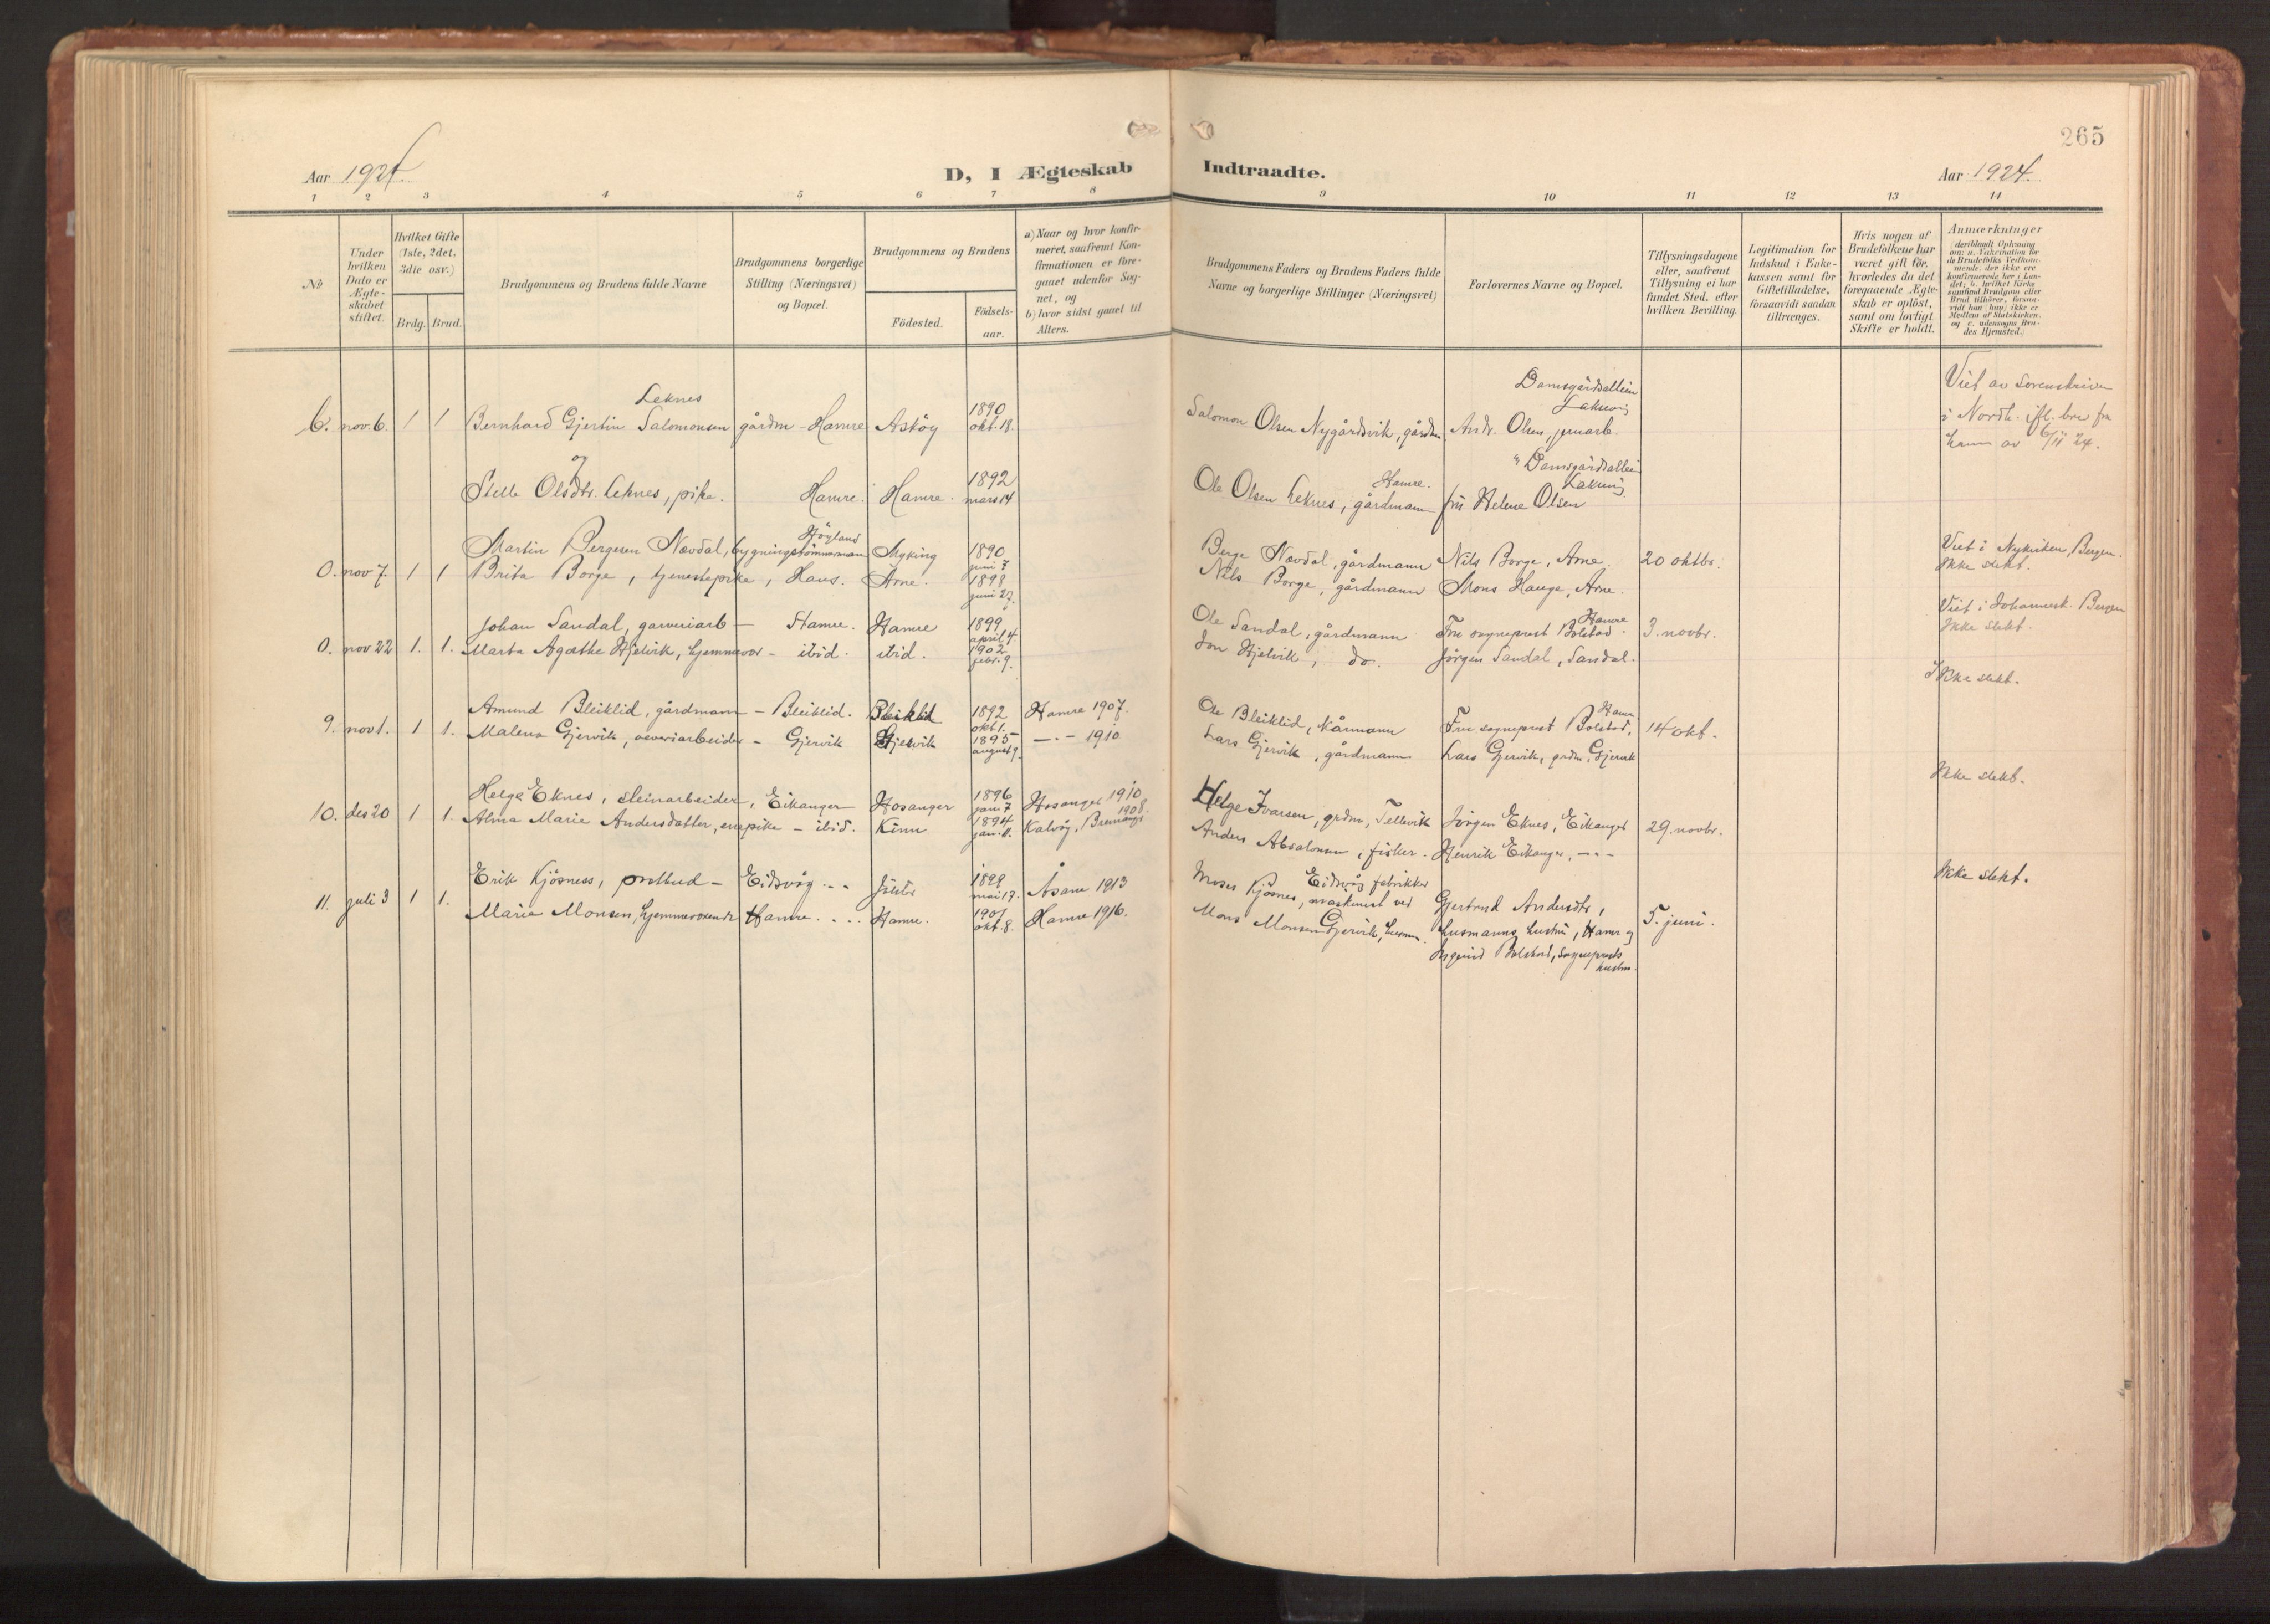 265
Aar 1924.
D, I Ægteskab Indtraadte.
Aar 1924.
1 2 3 4 5 6 7 8 9 10 11 12 13 14
No
Under hvilken Dato er Ægteskabet stiftet.
Hvilket Gifte (1ste, 2det, 3die osv.)
Brdg. Brud.
Brudgommens og Brudens fulde Navne
Brudgommens borgerlige Stilling (Næringsvei) og Bopæl.
Brudgommens og Brudens
Födested.
Födsels-aar.
a) Naar og hvor konfirmeret, saafremt Konfirmationen er foregaaet udenfor Sognet, og
b) hvor sidst gaaet til Alters.
Brudgommens Faders og Brudens Faders fulde Navne og borgerlige Stillinger (Næringsvei)
Forlovernes Navne og Bopæl.
Tillysningsdagene eller, saafremt Tillysning ei har fundet Sted, efter hvilken Bevilling.
Legitimation for Indskud i Enkekassen samt for Giftetilladelse, forsaavidt saadan tiltrænges.
Hvis nogen af Brudefolkene har været gift för, hvorledes da det foregaaende Ægteskab er oplöst, samt om lovligt Skifte er holdt.
Anmærkninger (deriblandt Oplysning om: a. Vakcination for de Brudefolks Vedkommende, der ikke ere konfirmerede her i Landet; b. hvilket Kirkesamfund Brudgom eller Brud tilhörer, forsaavidt han (hun) ikke er Medlem af Statskirken; og c. udensogns Brudes Hjemsted.)
Leknes
6. nov. 6. 1 1 Bernhard Gjertin Salomonsen gårdm - Hamre Askøy 1890 okt. 18.
Salomon Olsen Nygårdsvik, gårdm. Andr. Olsen, jernarb. Damsgårdsalleen Laksevåg
Viet av sorenskriver i Nordh. ifl. brev fra ham av 6/11 24.
og
Olsdtr. Leknes, pike. Hamre. Hamre. 1892 mars 14
Ole Olsen Leknes, gårdmann Hamre. fru Helene Olsen Damsgårdsalleen
Martin Bergesen Nævdal, bygningstömmermann Høyland Myking 1890 juni 7
0. nov 7. 1 1 Brita Borge, tjenestepike, Haus. Arne. 1898 juni 27.
Berge Nævdal, gårdmann Nils Borge, Arne. 20 oktbr.
Nils Borge, gårdmann Mons Hauge, Arne.
Viet i Nykirken, Bergen. Ikke slekt.
Johan Sandal, garveriarb - Hamre. Hamre 1899 april 4.
0. nov 22 1. 1. Marta Agathe Hjelvik, hjemmevær - ibid. ibid. 1902 febr. 9.
Ole Sandal, gårdmann Fru sogneprest Bolstad Hamre. 3. novbr.
Jon Hjelvik, do. Jörgen Sandal, Sandal.
Viet i Johannesk. Bergen Ikke slekt.
Amund Bleiklid, gårdmann - Bleiklid. Bleiklid 1892 okt 1. Hamre 1907.
9. nov 1. 1 1. Malena Gjervik, veveriarbeider - Gjervik Gjervik 1895 august 9. -.- 1910
Ole Bleiklid, kårmann Fru sogneprest Bolstad, Hamre 14 okt.
Lars Gjervik, gårdmann Lars Gjervik, grdm, Gjervik
Ikke slekt.
Helge Eknes, steinarbeider, Eikanger Hosanger 1896 jan. 7 Hosanger 1910
10. des 20 1 1. Alma Marie Andersdatter, enepike - ibid. Kinn 1894 Kalvåg, Bremanger 1908.
Helge Ivarsen, grdm, Tellevik Jörgen Eknes, Eikanger 29. novbr.
Anders Absalonsen, fisker. Henrik Eikanger, -.-
Ikke slekt.
Erik Kjösness, postbud - Eidsvåg -.- Jölster 1899 mai 17. Åsane 1913
11. juli 3 1 1. Marie Monsen, hjemmeværende Hamre. Hamre. 1901 okt. 8. Hamre 1916.
Moses Kjösnes, maskinist ved Eidsvåg fabrikker Gjertrud Andersdtr,
Mons Monsen Gjervik, husmann. husmanns hustru, Hamre og 5. juni.
Ingrid Bolstad, Sogneprests hustru.
Ikke slekt.